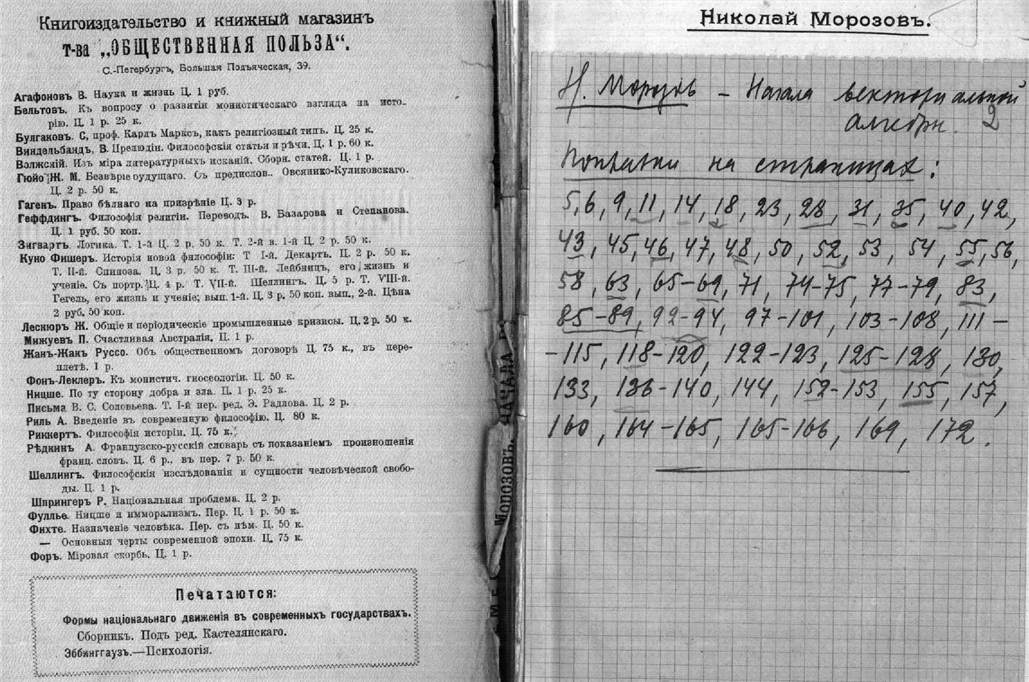 Книгоиздательство и книжный магазинъ
т-ва „ОБЩЕСТВЕННАЯ ПОЛЬЗА“.
С.-Петербургъ, Большая Подъяческая, 39.
Агафоновъ В. Наука и жизнь Ц. 1 руб.
Бельтовъ. Къ вопросу о развитіи монистическаго взгляда на исто-
рію. Ц. 1 р. 25 к.
Булгаковъ. С, проф. Карлъ Марксъ, какъ религіозный типъ. Ц. 25 к.
Виндельбандъ, В. Прелюдіи. Философскія статьи и рѣчи. Ц. 1 р. 60 к.
Волжскій. Изъ міра литературныхъ исканій. Сборн. статей. Ц. 1 р.
Гюйо Ж. М. Безвѣріе будущаго. Съ предислов.. Овсянико-Куликовскаго.
Ц. 2 р. 50 к.
Гагенъ. Право бѣднаго на призрѣніе Ц. 3 р.
Геффдингъ. Философія религіи. Переводъ. В. Базарова и Степанова.
Ц. 1 руб. 50 коп.
Зигвартъ. Логика. Т. 1-й Ц. 2 р. 50 к. Т. 2-й в. 1-й Ц. 2 р. 50 к.
Куно Фишеръ. Исторія новой философіи: Т І-й. Декартъ. Ц. 2 р. 50 к.
Т. ІІ-й. Спиноза. Ц. 3 р. 50 к. Т ІІІ-й. Лейбницъ, его жизнь и
ученіе. Съ портр. Ц. 4 р. Т. VII-й. Шеллингъ. Ц. 5 р. Т. VIII-й.
Гегель, его жизнь и ученіе; вып. 1-й. Ц. 3 р. 50 коп. вып., 2-й. Цѣна
2 руб. 50 коп.
Лескюръ Ж. Общіе и періодическіе промышленные кризисы. Ц. 2 р. 50 к.
Мижуевъ П. Счастливая Австралія, Ц. 1 р.
Жанъ-Жакъ Руссо. Объ общественномъ договорѣ Ц. 75 к., въ пере-
плетѣ. 1 р.
Фонъ-Леклеръ. Къ монистич. гносеологіи. Ц. 50 к.
Ницше. По ту сторону добра и зла. Ц. 1 р. 25 к.
Письма В. С. Соловьева. Т. І-й пер. ред. Э. Радлова. Ц. 2 р.
Риль А. Введеніе въ современную философію. Ц. 80 к.
Риккертъ. Философія исторіи. Ц. 75 к.
Рѣдкинъ А. Французско-русскій словарь съ показаніемъ произношенія
франц. словъ. Ц. 6 р., въ пер. 7 р. 50 к.
Шеллингъ. Философскія изслѣдованія и сущности человѣческой свобо-
ды. Ц. 1 р.
Шпрингеръ Р. Національная проблема. Ц. 2 р.
Фуллье. Ницше и имморализмъ. Пер. Ц. 1 р. 50 к.
Фихте. Назначеніе человѣка. Пер. съ нѣм. Ц. 50 к.
— Основныя черты современной эпохи. Ц. 75 к.
Форъ. Міровая скорбь. Ц. 1 р.
Печатаются:
Формы національнаго движенія въ современныхъ государствахъ.
Сборникъ. Подъ ред. Кастелянскаго.
Эббинггаузъ.—Психологія.
МОРОЗОВЪ. НАЧАЛА
Николай Морозовъ.
Н. Морозов – Начала векториальной
алгебры. 2
Поправки на страницах:
5, 6, 9, 11, 14, 18, 23, 28, 31, 35, 40, 42,
43, 45, 46, 47, 48, 50, 52, 53, 54, 55, 56,
58, 63, 65–69, 71, 74–75, 77–79, 83,
85–89, 92–94, 97–101, 103–108, 111–
–115, 118–120, 122–123, 125–128, 130,
133, 136–140, 144, 152–153, 155, 157,
160, 164–165, 165–166, 169, 172.